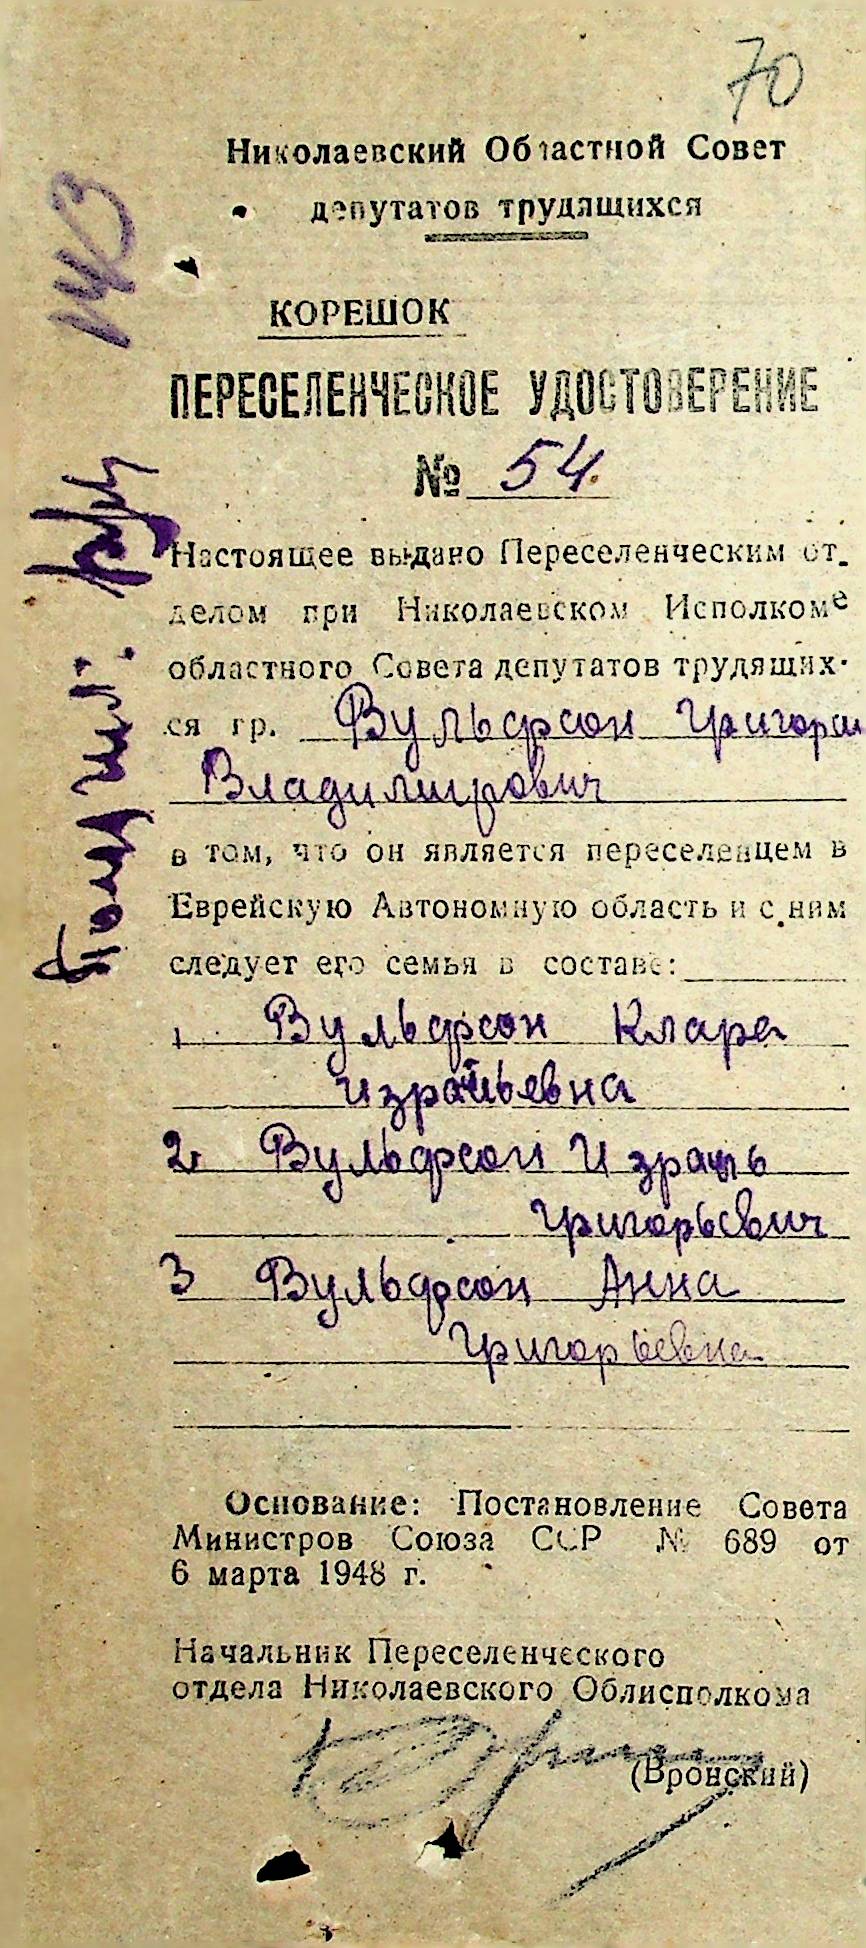 70
Николаевский Областной Совет
депутатов трудящихся
143
КОРЕШОК
ПЕРЕСЕЛЕНЧЕСКОЕ УДОСТОВЕРЕНИЕ
№ 54.
Настоящее выдано Переселенческим от-
делом при Николаевском Исполкоме
областного Совета депутатов трудящих-
ся гр. Вульфсон Григорий
Владимирович
в том, что он является переселенцем в
Еврейскую Автономную область и с ним
следует его семья в составе:
1. Вульфсон Клара
Израильевна
2. Вульфсон Израиль
Григорьевич
3 Вульфсон Анна
Григорьевна
Основание: Постановление Совета
Министров Союза ССР № 689 от
6 марта 1948 г.
Начальник Переселенческого
отдела Николаевского Облисполкома
(Вронский)